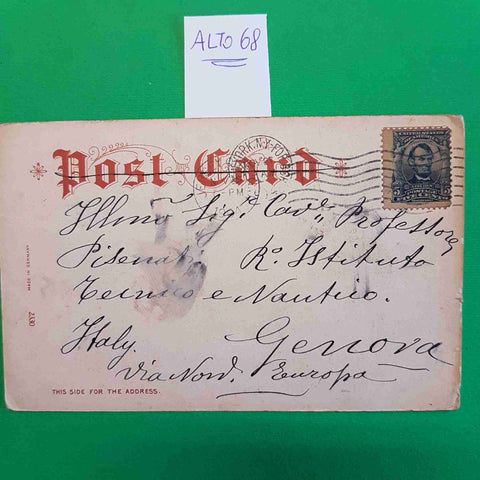 ALTO 68
Post Card
YORK, N.Y.
PM
5 5
Illmo Sigr Cavre Professore
Pisenati R. Istituto
Tecnico e Nautico.
Italy. Genova
Via Nord. Europa
THIS SIDE FOR THE ADDRESS.
MADE IN GERMANY
2330